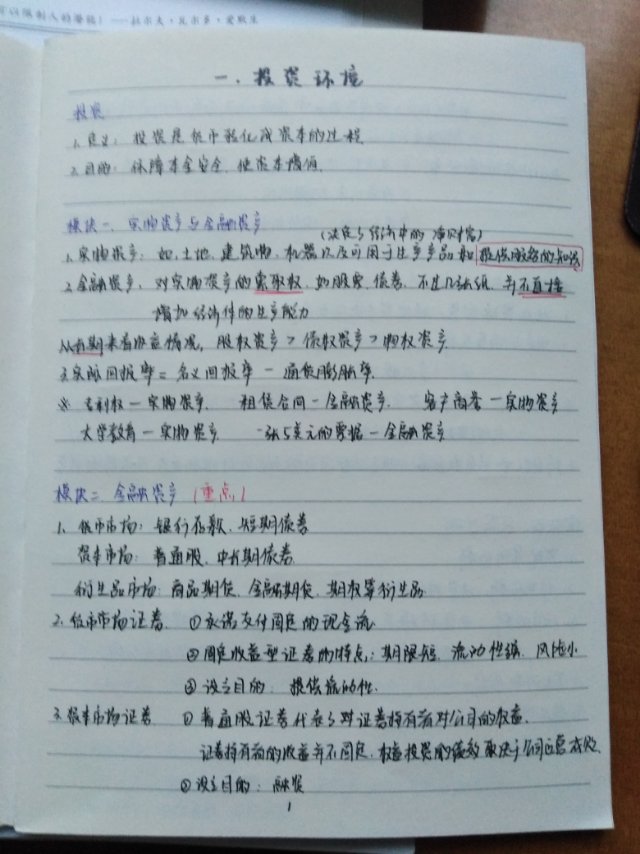 可以限制人的潜能！——拉尔夫·瓦尔多·爱默生
一、投资环境
投资
1. 定义：投资是货币转化成资本的过程
2. 目的：保障本金安全，使资本增值.
模块一、实物资产与金融资产
(决定了经济中的净财富)
1. 实物资产：如，土地、建筑物、机器以及可用于生产产品和提供服务的知识
2. 金融资产，对实物资产的索取权，如股票、债券，不过几张纸，并不直接
增加经济体的生产能力
从长期来看收益情况，股权资产 > 债权资产 > 物权资产
3. 实际回报率 = 名义回报率 - 通货膨胀率.
※ 专利权—实物资产， 租赁合同—金融资产， 客户商誉—实物资产
大学教育—实物资产 一张5美元的票据—金融资产
模块二、金融资产 (重点)
1. 货币市场：银行存款、短期债券
资本市场：普通股、中长期债券
衍生品市场：商品期货、金融期货、期权等衍生品
2. 货币市场证券 ①承诺支付固定的现金流
②固定收益型证券的特点：期限短、流动性强、风险小
③设立目的：提供流动性.
3. 资本市场证券 ①普通股证券代表了对证券持有者对公司的权益.
证券持有者的收益并不固定，权益投资的绩效取决于公司运营成败.
②设立目的：融资
1